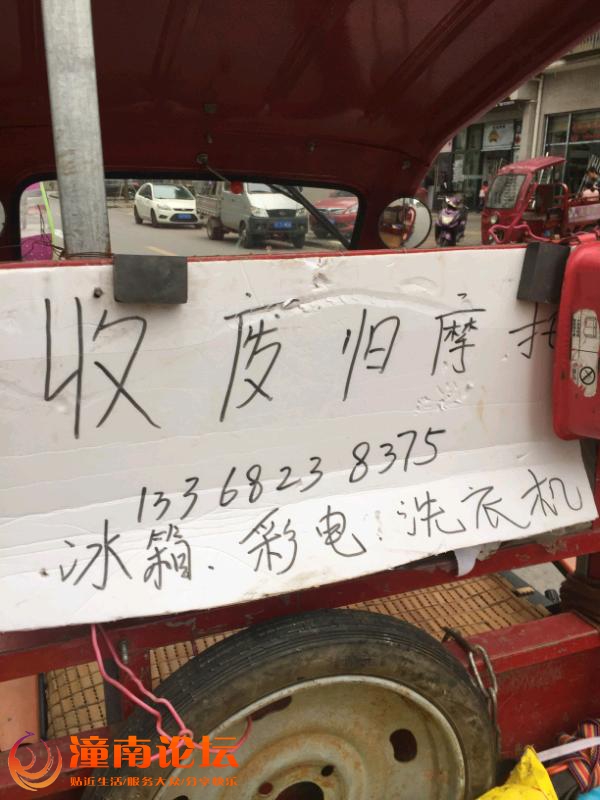 收废归摩托
13368238375
冰箱.彩电.洗衣机
潼南论坛
贴近生活/服务大众/分享快乐